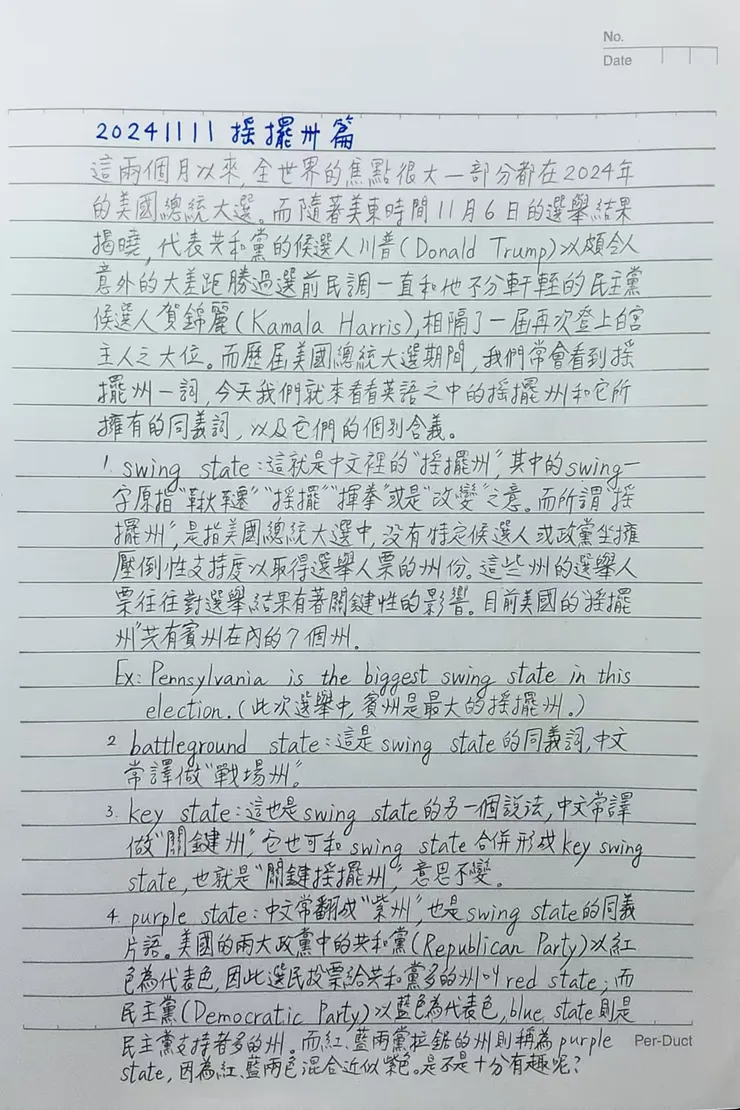 No.
Date
20241111 搖擺州篇
這兩個月以來,全世界的焦點很大一部分都在2024年
的美國總統大選。而隨著美東時間11月6日的選舉結果
揭曉,代表共和黨的候選人川普(Donald Trump)以頗令人
意外的大差距勝過選前民調一直和他不分軒輊的民主黨
候選人賀錦麗(Kamala Harris),相隔了一屆再次登上白宮
主人之大位。而歷屆美國總統大選期間,我們常會看到搖
擺州一詞,今天我們就來看看英語之中的搖擺州和它所
擁有的同義詞,以及它們的個別含義。
1. swing state:這就是中文裡的"搖擺州",其中的swing一
字原指"鞦韆""搖擺""揮拳"或是"改變"之意。而所謂"搖
擺州",是指美國總統大選中,沒有特定候選人或政黨坐擁
壓倒性支持度以取得選舉人票的州份。這些州的選舉人
票往往對選舉結果有著關鍵性的影響。目前美國的"搖擺
州"共有賓州在內的7個州。
Ex: Pennsylvania is the biggest swing state in this
election.(此次選舉中,賓州是最大的搖擺州。)
2. battleground state:這是swing state的同義詞,中文
常譯做"戰場州"。
3. key state:這也是swing state的另一個說法,中文常譯
做"關鍵州",它也可和swing state合併形成key swing
state,也就是"關鍵搖擺州",意思不變。
4. purple state:中文常翻成"紫州",也是swing state的同義
片語。美國的兩大政黨中的共和黨(Republican Party)以紅
色為代表色,因此選民投票給共和黨多的州叫red state;而
民主黨(Democratic Party)以藍色為代表色,blue state則是
民主黨支持者多的州。而紅、藍兩黨拉鋸的州則稱為purple
Per-Duct
state,因為紅、藍兩色混合近似紫色。是不是十分有趣呢?